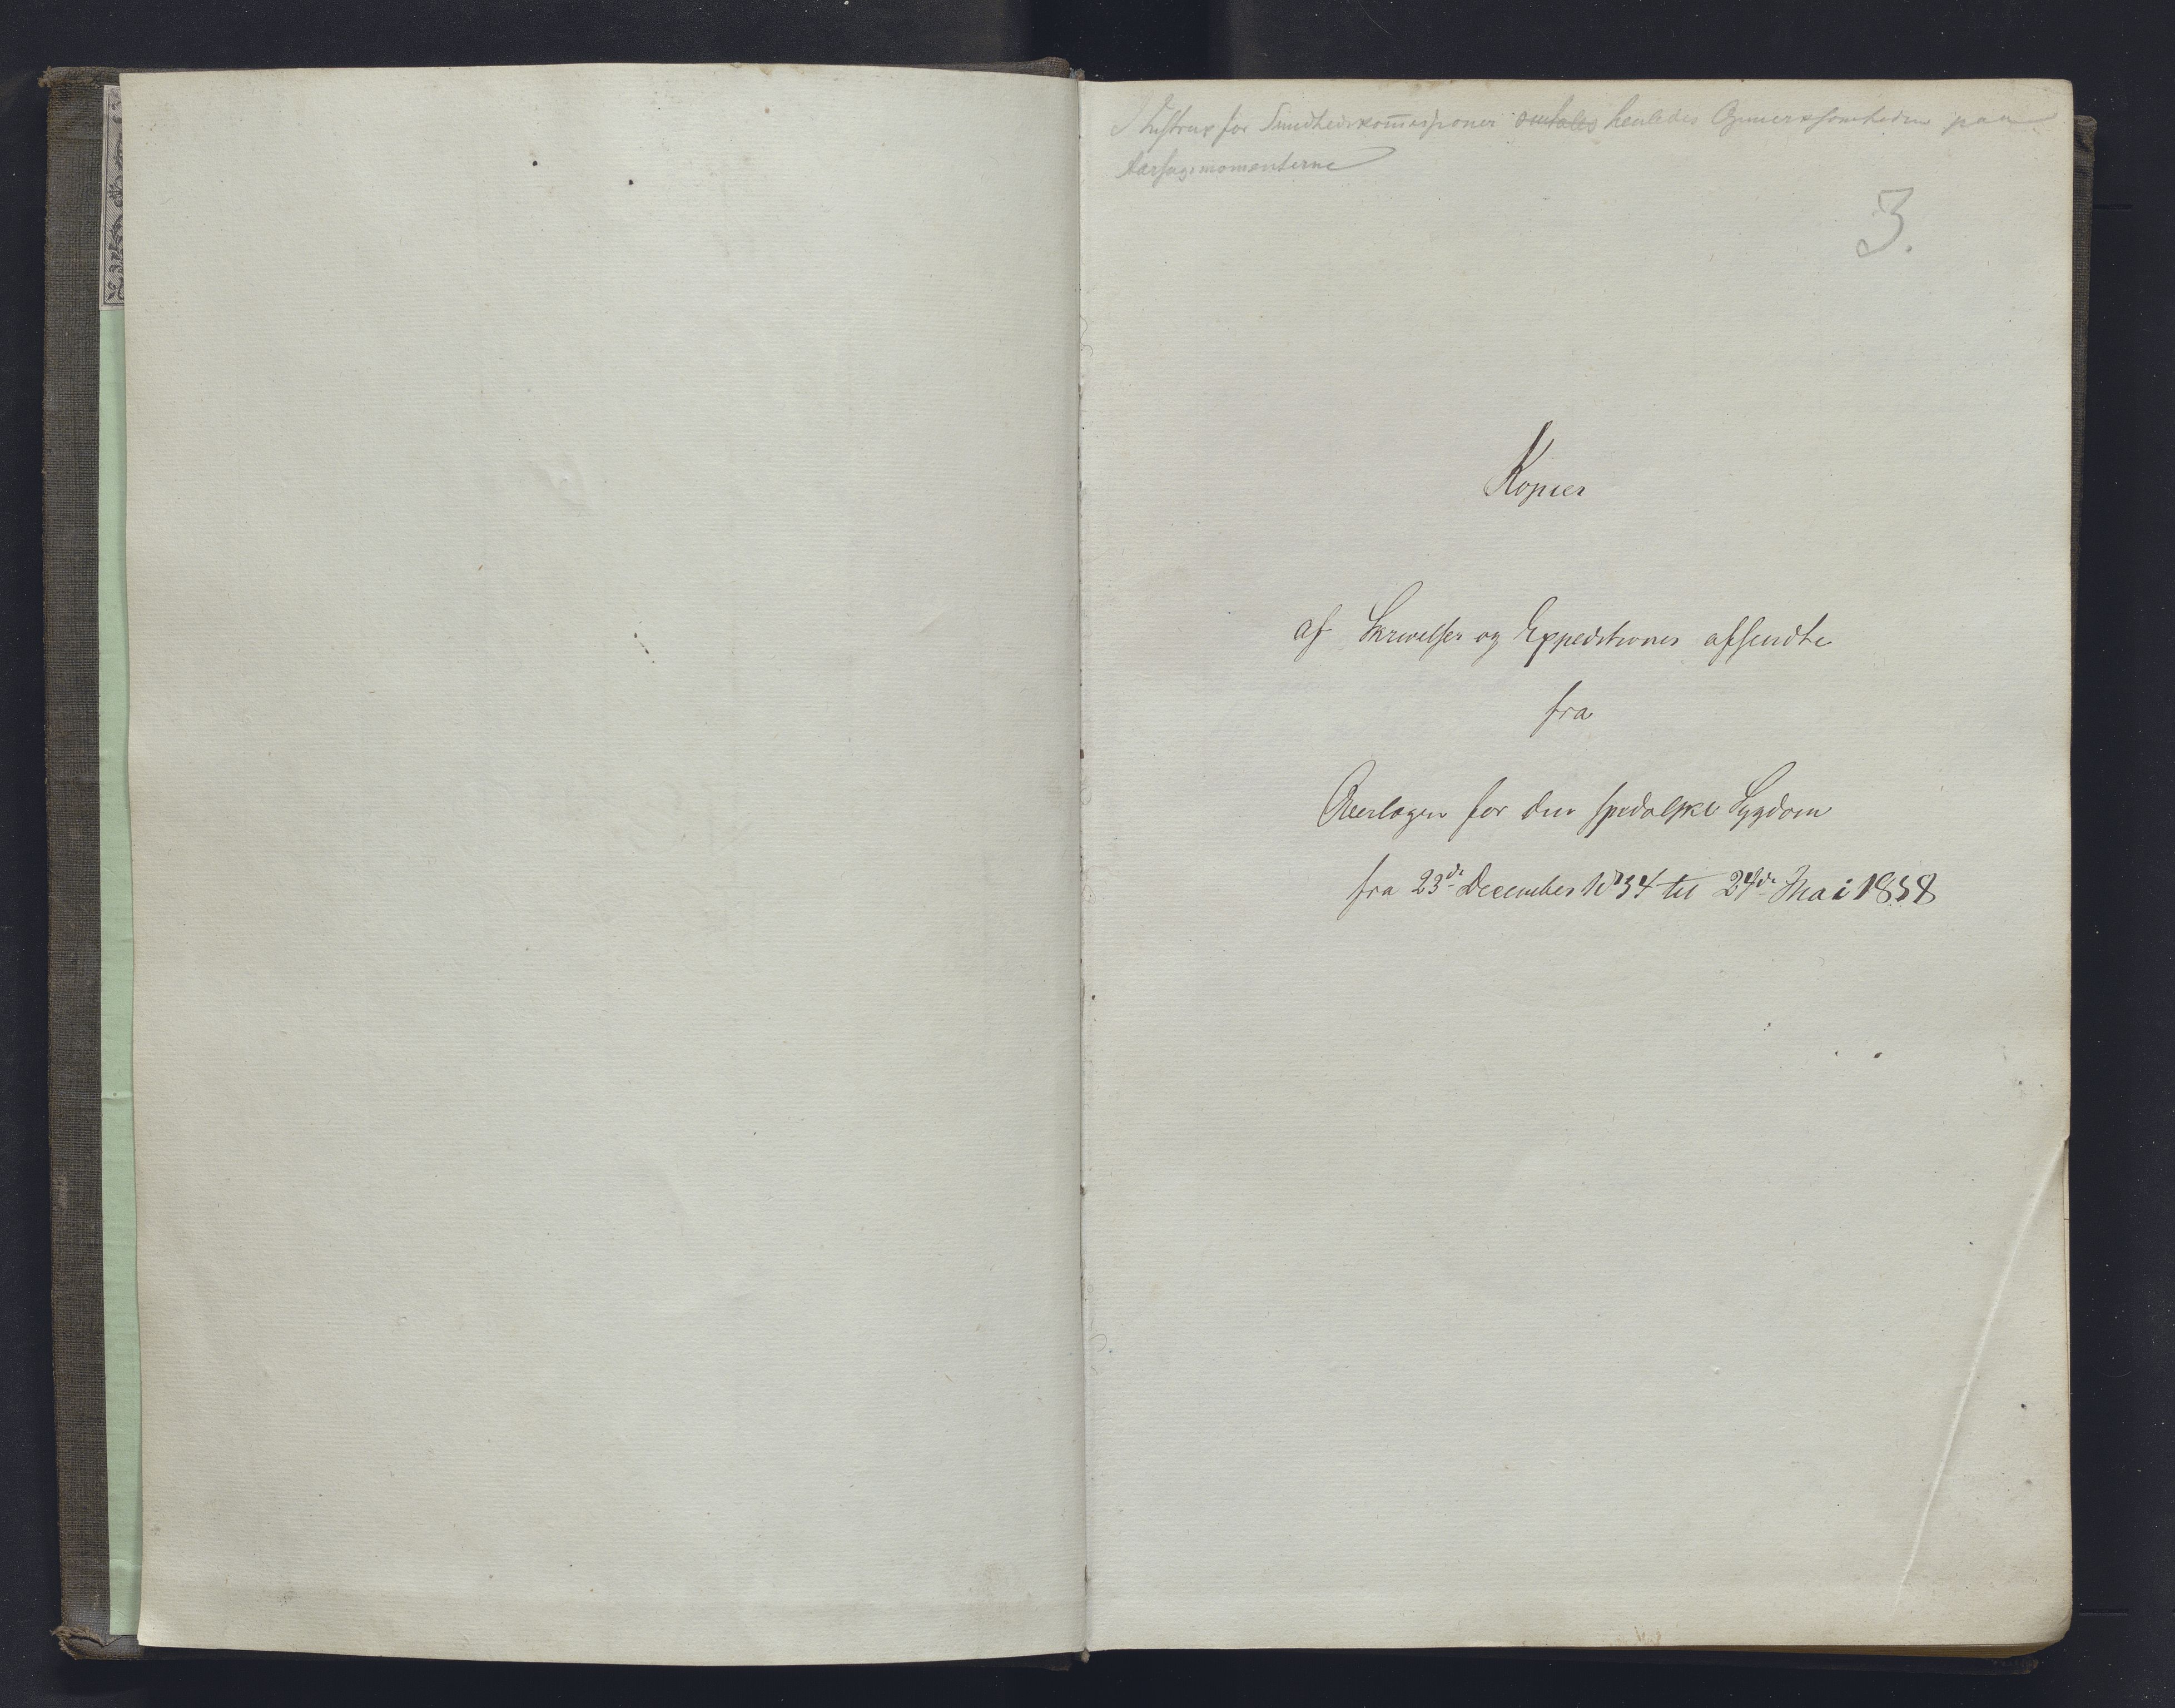 I Instrux for Sundhedskom̅issioner omtales henledes Opmerksomheden paa
Aarsagsmomenterne
3.
Kopier
af Skrivelser og Expeditioner afsendte
fra
Overlægen for den spedalske Sygdom
fra 23de December 1854 til 24de Mai 1858